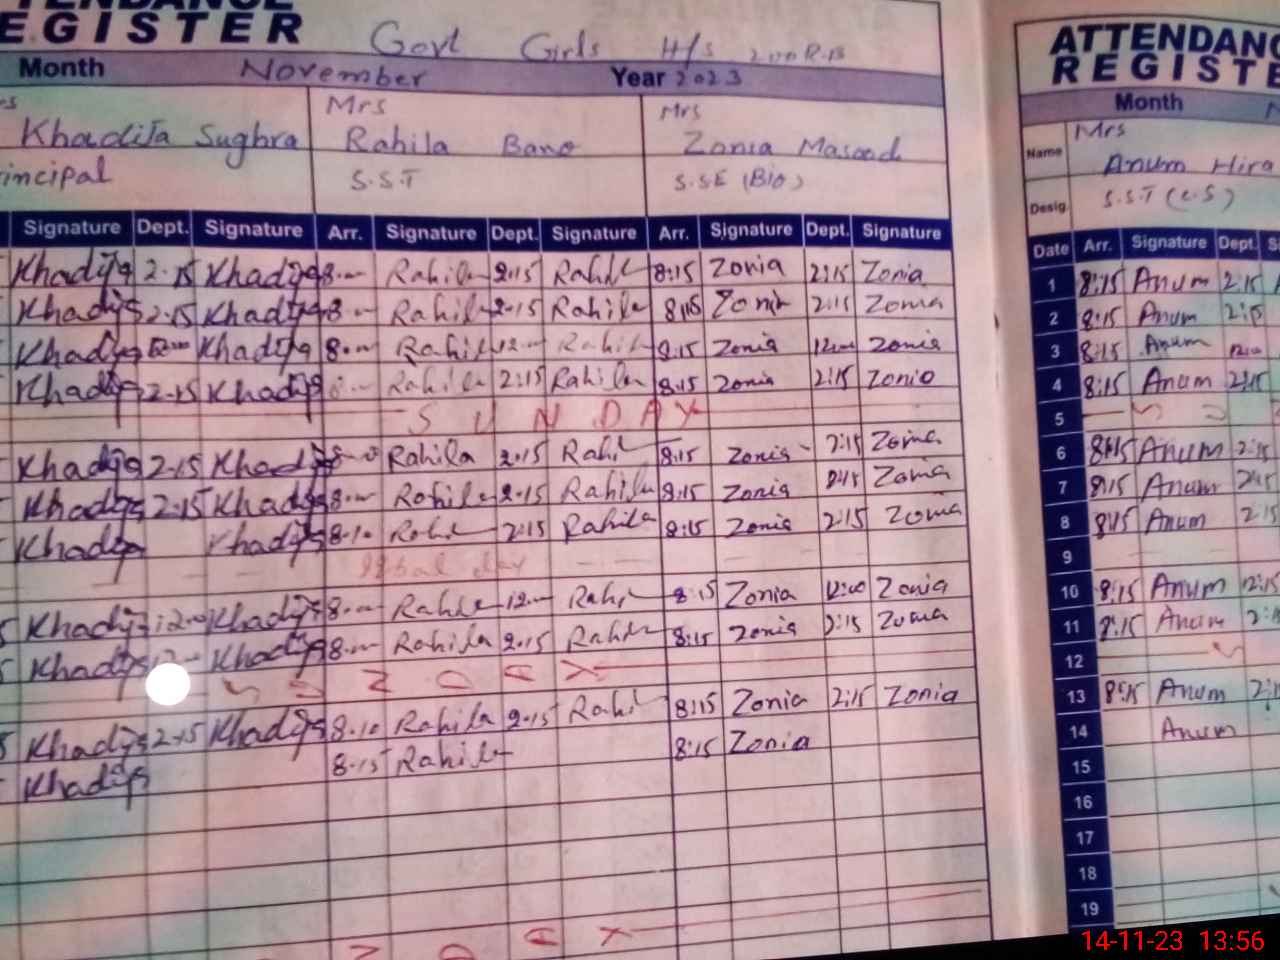 ATTENDANCE
REGISTER Govt Girls H/S
Month November Year 2023
Khadija Sughra
Mrs Rahila Bano
Mrs Zonia Masood
Principal S.S.T S.S.E (Bio)
Signature Dept. Signature Arr. Signature Dept. Signature Arr. Signature Dept. Signature
Khadija 2.15 Khadija 8.00 Rahila 2.15 Rahila 8:15 Zonia 2:15 Zonia
Khadija 2.15 Khadija 8.00 Rahila 2.15 Rahila 8:15 Zonia 2:15 Zonia
Khadija 12.00 Khadija 8.00 Rahila 12.00 Rahila 8:15 Zonia 12:00 Zonia
Khadija 2.15 Khadija 8.00 Rahila 2:15 Rahila 8:15 Zonia 2:15 Zonia
SUNDAY
Khadija 2.15 Khadija 8.00 Rahila 2.15 Rahila 8:15 Zonia 2:15 Zonia
Khadija 2.15 Khadija 8.00 Rahila 2.15 Rahila 8:15 Zonia 2:15 Zonia
Khadija Khadija 8.10 Rahila 2:15 Rahila 8:15 Zonia 2:15 Zonia
Iqbal day
Khadija 12.00 Khadija 8.00 Rahila 12.00 Rahila 8:15 Zonia 12:00 Zonia
Khadija Khadija 8.00 Rahila 2.15 Rahila 8:15 Zonia 2:15 Zonia
SUNDAY
Khadija 2.15 Khadija 8.10 Rahila 2.15 Rahila 8:15 Zonia 2:15 Zonia
Khadija 8.15 Rahila 8:15 Zonia
NDAY
ATTENDANC
REGISTE
Month
Name Mrs Anum Hira
Desig. S.S.T (C.S)
Date Arr. Signature Dept. S
1 8:15 Anum 2:15
2 8:15 Anum 2:15
3 8:15 Anum 12:00
4 8:15 Anum 2:15
5
6 8:15 Anum 2:15
7 8:15 Anum 2:15
8 8:15 Anum 2:15
9
10 8:15 Anum
11 8:15 Anum
12
13 8:15 Anum
14 Anum
15
16
17
18
19
14-11-23 13:56